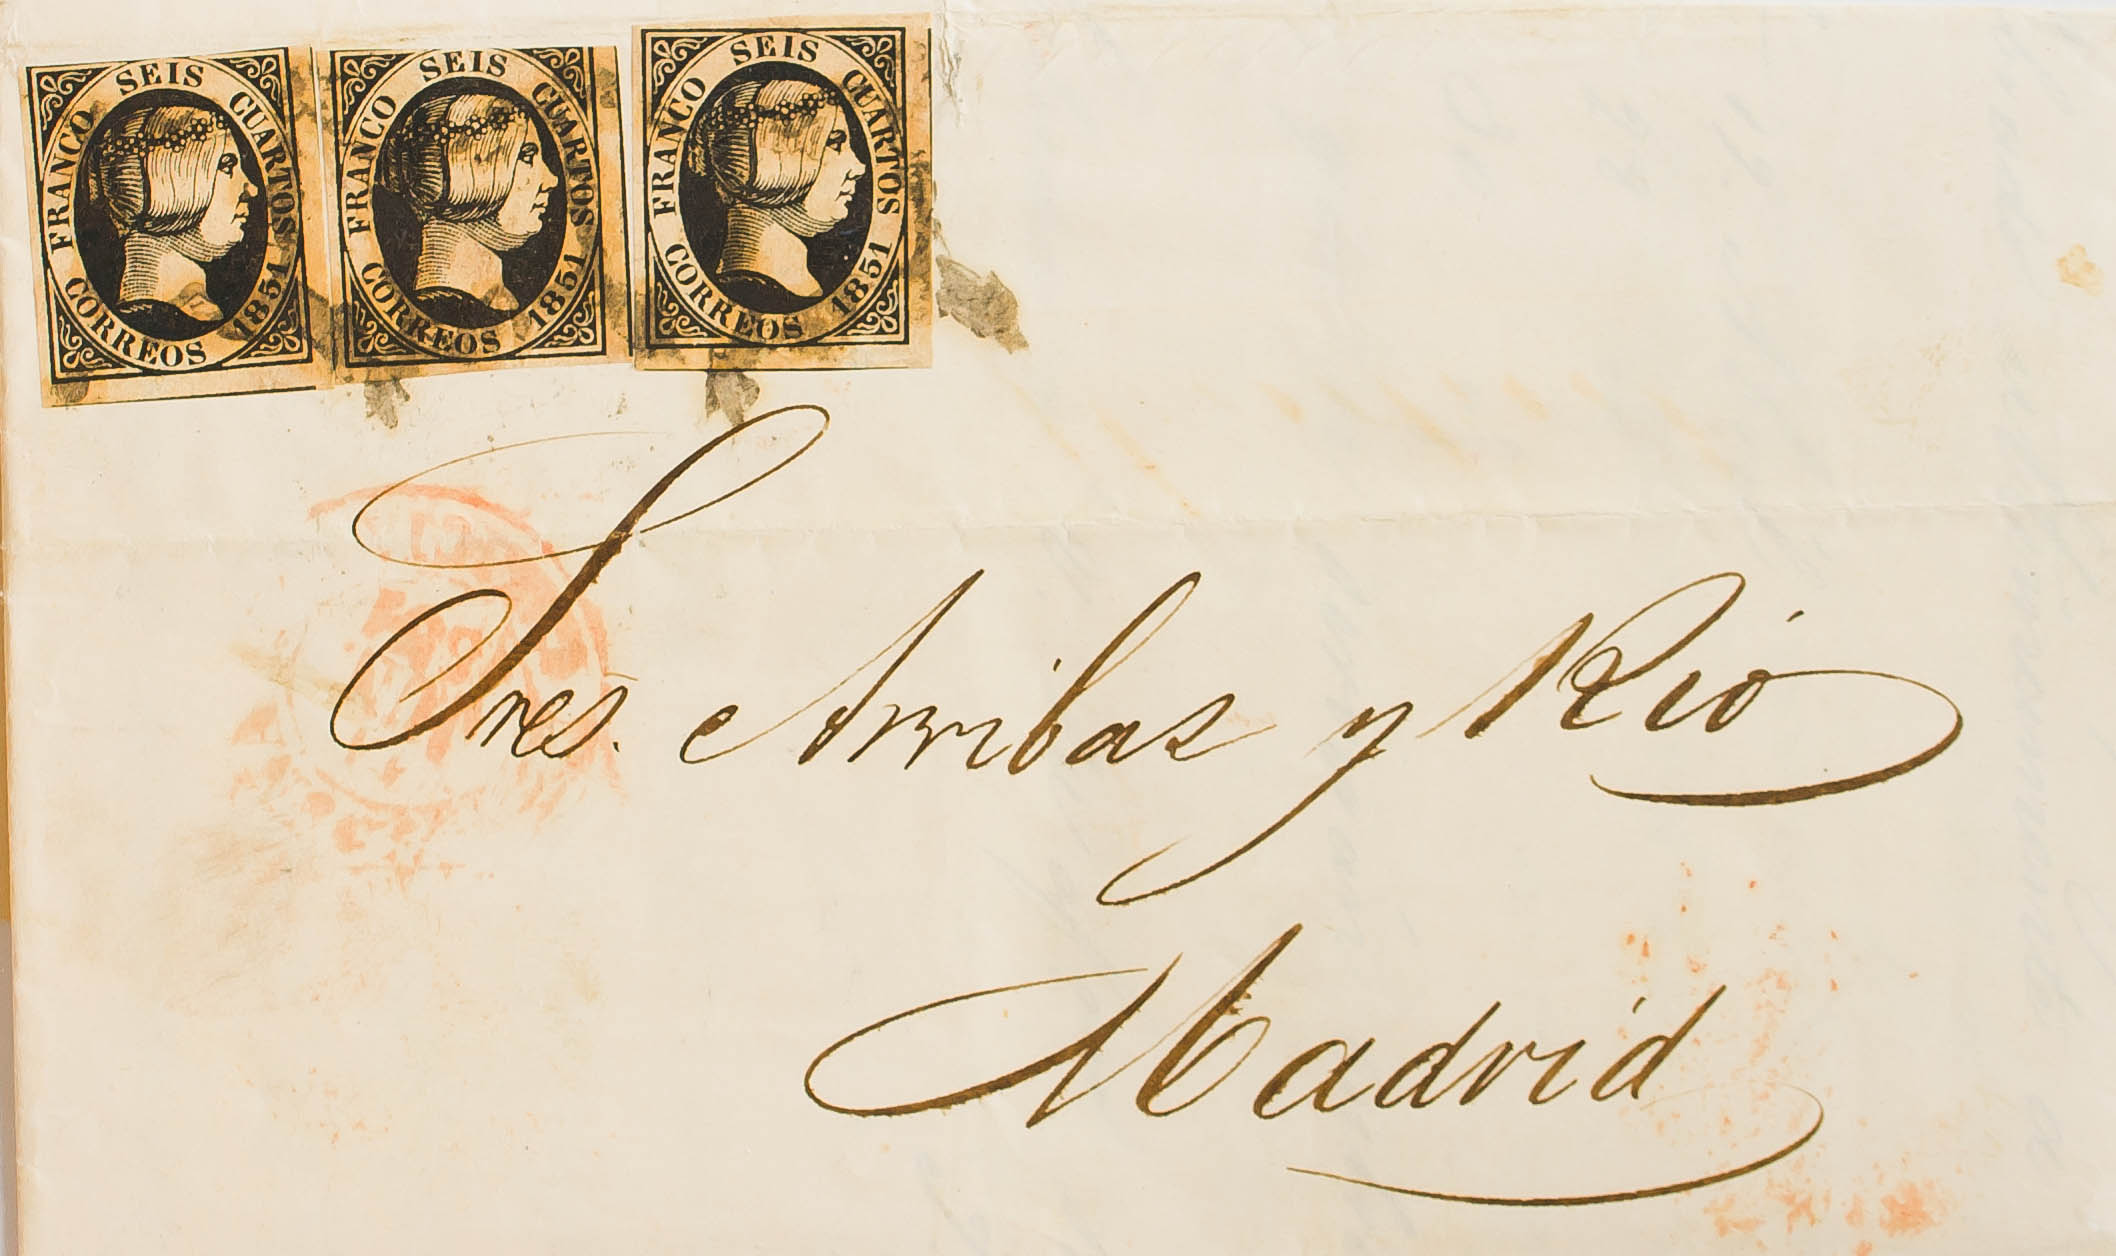 FRANCO SEIS CUARTOS
CORREOS 1851
FRANCO SEIS CUARTOS
CORREOS 1851
FRANCO SEIS CUARTOS
CORREOS 1851
Sres. Arribas y Rió
Madrid